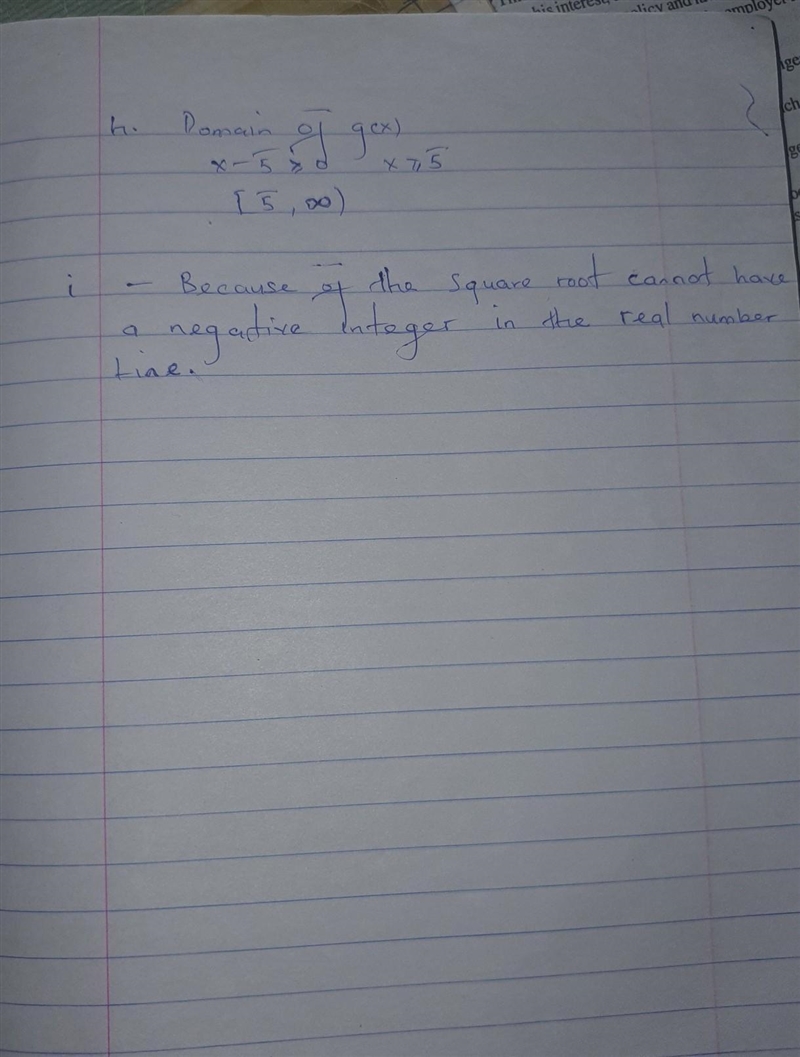 his interest, olicy and employer
ge
ch
h. Domain of g(x)
x - 5 ⩾ 0 x ⩾ 5
[5, ∞)
i - Because of the square root cannot have
a negative integer in the real number
Line.